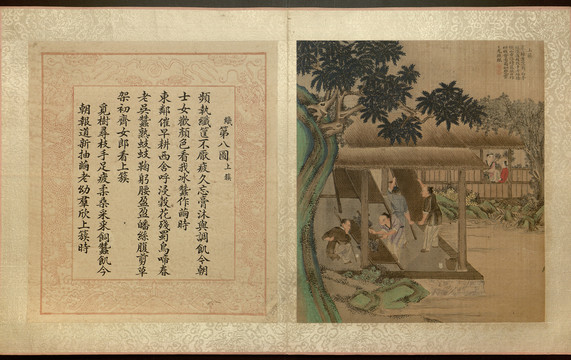 織第八圖上簇
頻執纖筐不厭疲久忘膏沐與調飢今朝
士女歡顏色看我冰蠶作繭時
東鄰催早耕西舍呼浸穀花殘蜀鳥啼春
老吳蠶熟歧歧鞠躬腰盈盈皤絲腹剪草
架初齊女郎看上簇
覓樹尋枝手足疲柔桑采采飼蠶飢今
朝報道新抽繭老幼羣欣上簇時